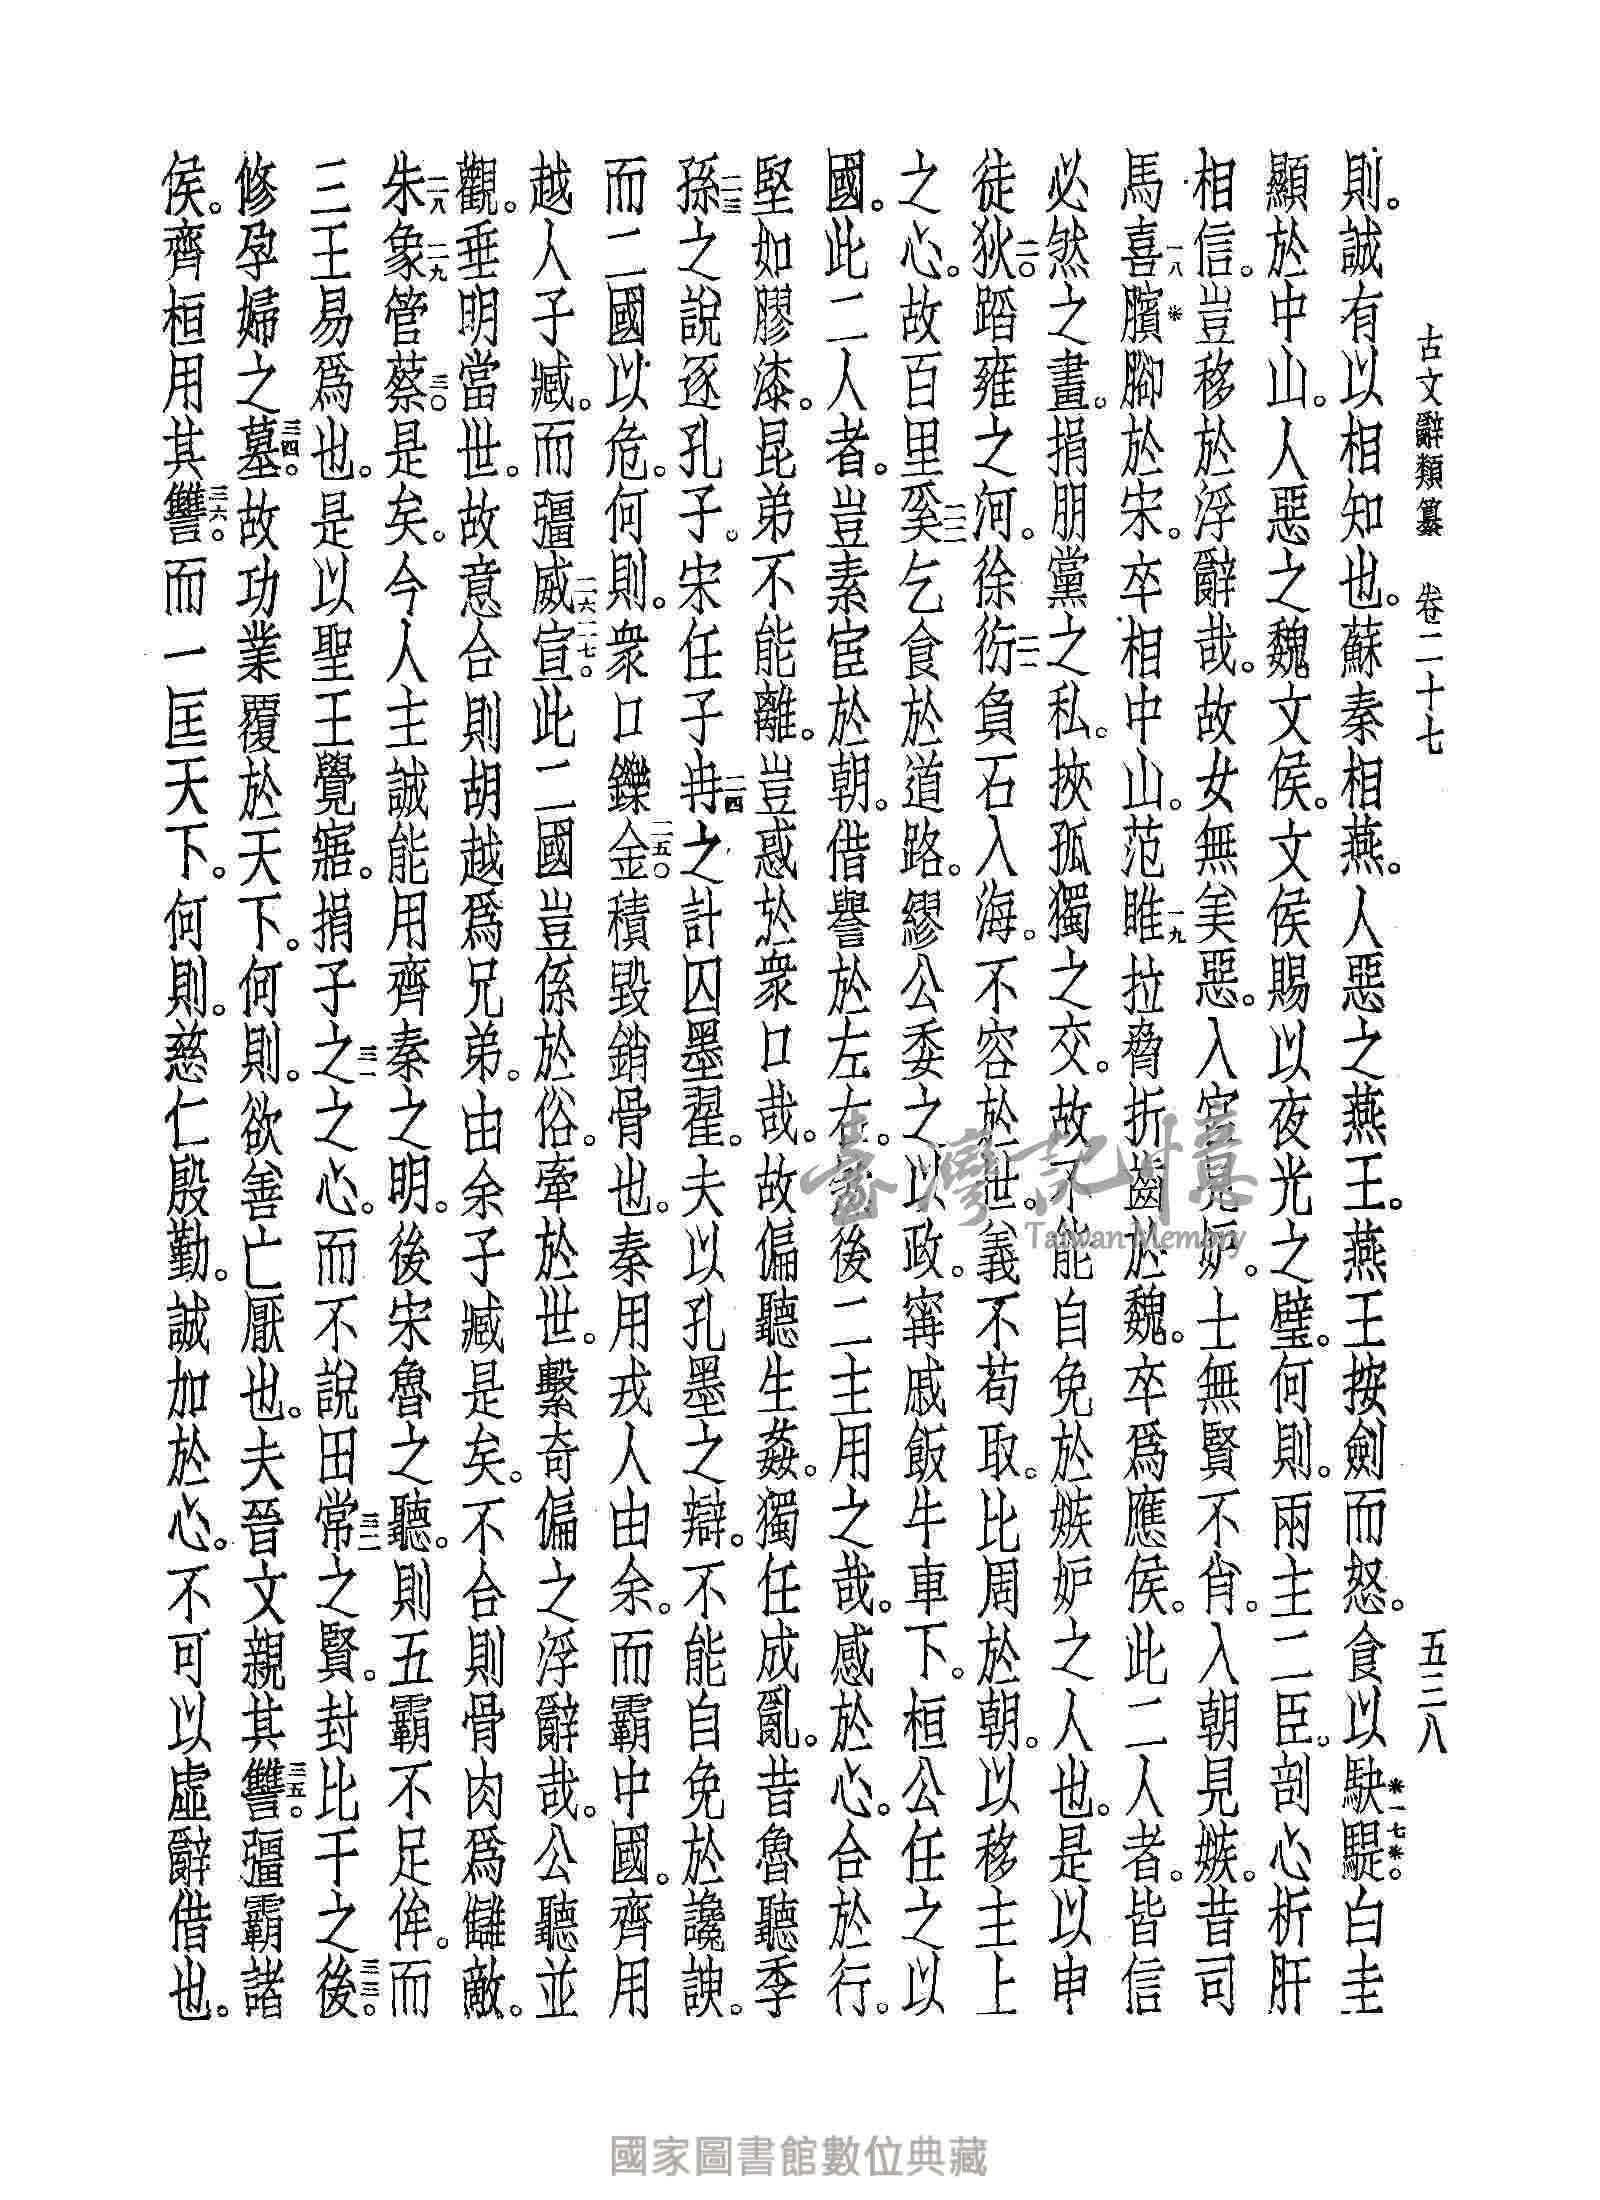 古文辭類纂　卷二十七　五三八
則。誠有以相知也。蘇秦相燕。人惡之燕王。燕王按劍而怒。食以駃※一七騠※。白圭
顯於中山。人惡之魏文侯。文侯賜以夜光之璧。何則。兩主二臣。剖心析肝
相信。豈移於浮辭哉。故女無美惡。入宮見妒。士無賢不肖。入朝見嫉。昔司
馬喜一八臏※腳於宋。卒相中山。范雎一九拉脅折齒於魏。卒爲應侯。此二人者。皆信
必然之畫。捐朋黨之私。挾孤獨之交。故不能自免於嫉妒之人也。是以申
徒狄二〇。蹈雍之河。徐衍二一負石入海。不容於世。義不苟取。比周於朝。以移主上
之心。故百里奚二二乞食於道路。繆公委之以政。甯戚飯牛車下。桓公任之以
國。此二人者。豈素宦於朝。借譽於左右。然後二主用之哉。感於心。合於行。
堅如膠漆。昆弟不能離。豈惑於衆口哉。故偏聽生姦。獨任成亂。昔魯聽季
孫二三之說逐孔子。宋任子冉二四之計囚墨翟。夫以孔墨之辯。不能自免於讒諛。
而二國以危。何則。衆口鑠金二五。積毀銷骨也。秦用戎人由余。而霸中國。齊用
越人子臧。而彊威二六宣二七。此二國豈係於俗。牽於世。繫奇偏之浮辭哉。公聽並
觀。垂明當世。故意合則胡越爲兄弟。由余子臧是矣。不合則骨肉爲讎敵。
朱二八象二九管蔡三〇。是矣。今人主誠能用齊秦之明。後宋魯之聽。則五霸不足侔。而
三王易爲也。是以聖王覺寤。捐子之三一之心。而不說田常三二之賢。封比干之後三三。
修孕婦之墓三四。故功業覆於天下。何則。欲善亡厭也。夫晉文親其讐三五。彊霸諸
侯。齊桓用其讐三六。而一匡天下。何則。慈仁殷勤。誠加於心。不可以虛辭借也。
臺灣記憶
Taiwan Memory
國家圖書館數位典藏